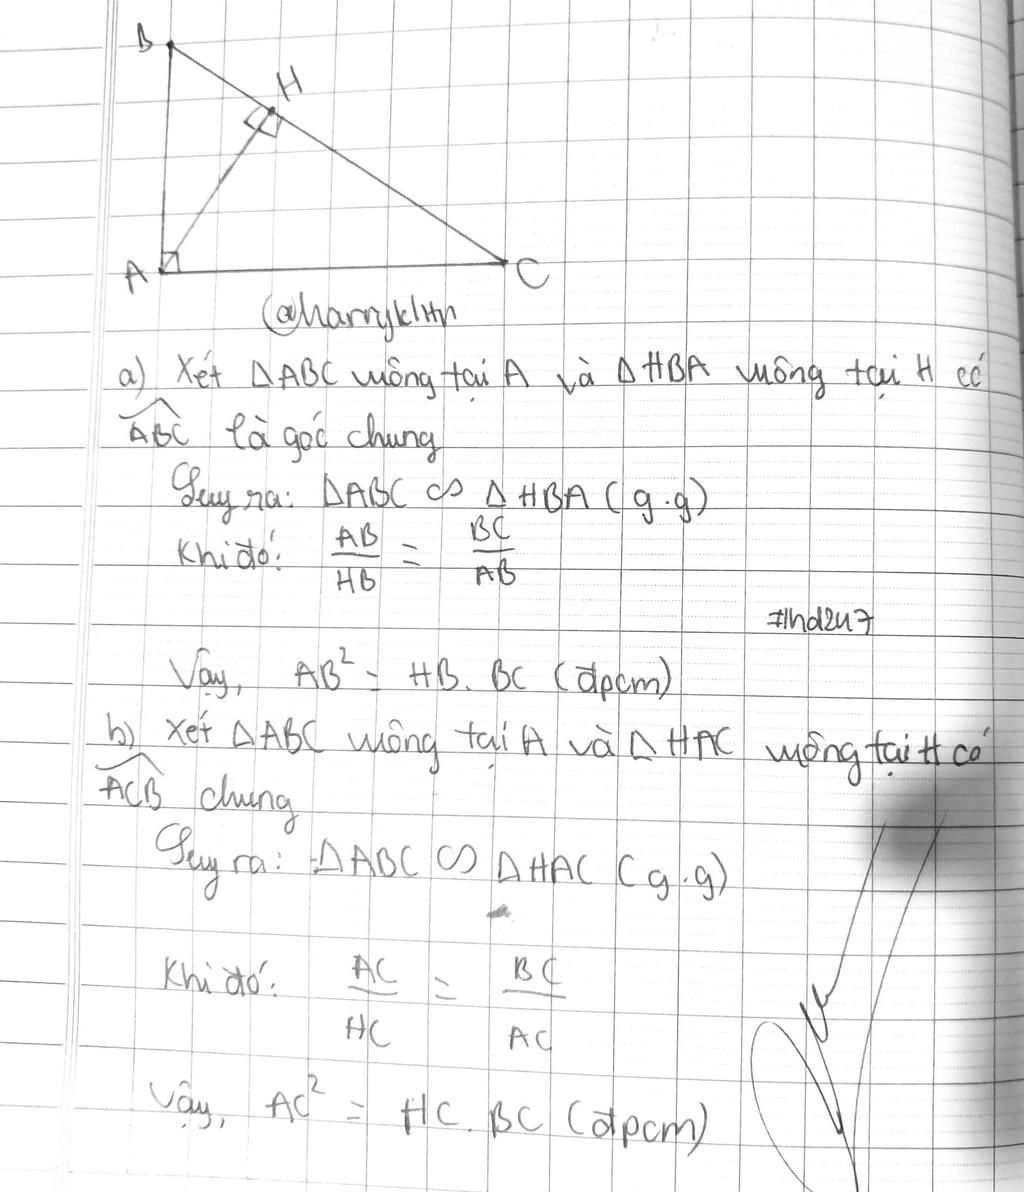 B
H
A
C
@harryklHn
a) Xét ΔABC vuông tại A và ΔHBA vuông tại H có
\widehat{ABC} là góc chung
Suy ra: ΔABC ∽ ΔHBA (g.g)
Khi đó: AB/HB = BC/AB
#lhd247
Vậy, AB² = HB. BC (đpcm)
b) Xét ΔABC vuông tại A và ΔHAC vuông tại H có
\widehat{ACB} chung
Suy ra: ΔABC ∽ ΔHAC (g.g)
Khi đó: AC/HC = BC/AC
Vậy, AC² = HC. BC (đpcm)